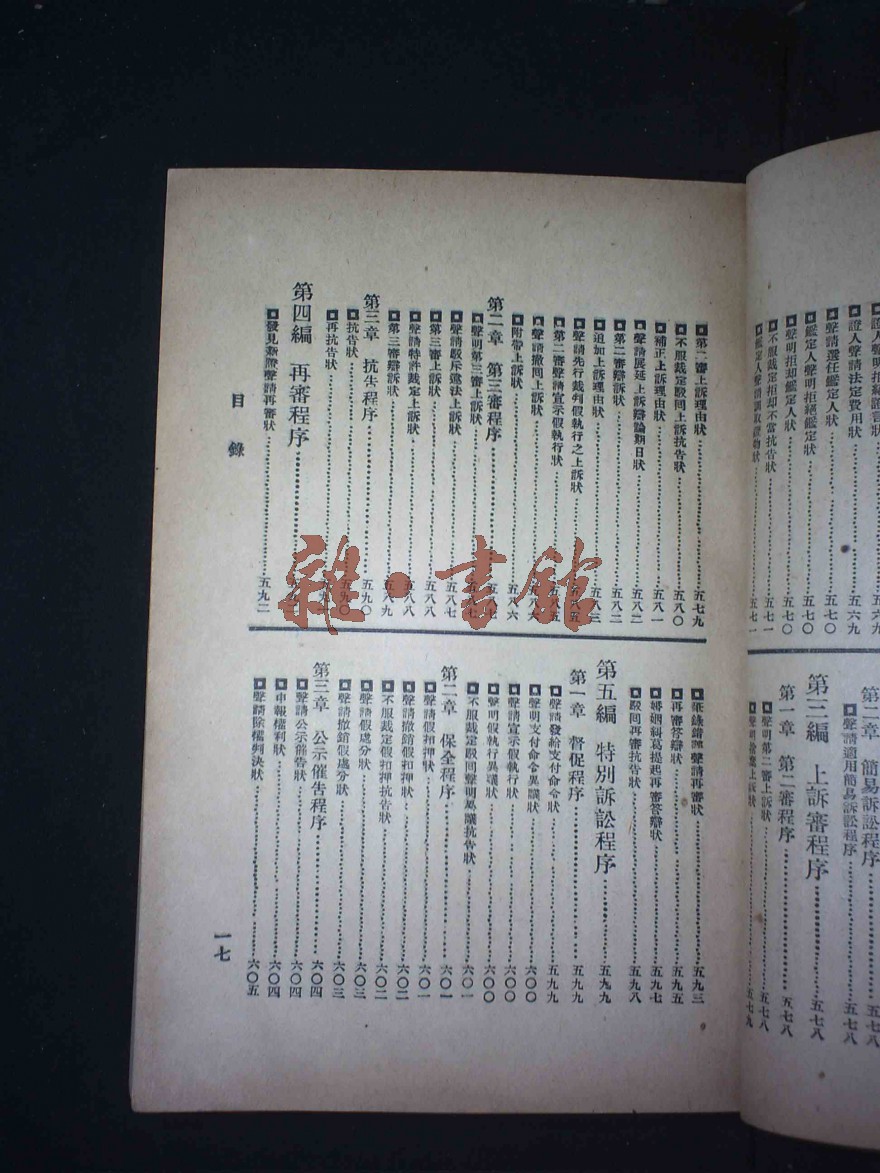 證人聲請法定費用狀 五六九
聲請選任鑑定人狀 五七〇
鑑定人聲明拒絕鑑定狀 五七〇
聲明拒却鑑定人狀 五七〇
不服裁定拒却不當抗告狀 五七一
五七一
第二章 簡易訴訟程序 五七八
聲請適用簡易訴訟程序 五七八
第三編 上訴審程序 五七八
第一章 第二審程序 五七八
聲明第二審上訴狀 五七八
五七九
第二審上訴理由狀 五七九
不服裁定駁回上訴抗告狀 五八〇
補正上訴理由狀 五八一
聲請展延上訴辯論期日狀 五八二
第二審辯訴狀 五八二
追加上訴理由狀 五八三
聲請先行裁判假執行之上訴狀 五八五
第二審聲請宣示假執行狀 五八五
聲請撤回上訴狀 五八六
附帶上訴狀 五八六
第二章 第三審程序 五八七
聲明第三審上訴狀 五八七
聲請駁斥違法上訴狀 五八七
第三審上訴狀 五八八
聲請特許裁定上訴狀 五八八
第三審辯訴狀 五八九
第三章 抗告程序 五九〇
抗告狀 五九〇
再抗告狀
第四編 再審程序
發見新證聲請再審狀 五九二
證錄錯誤聲請再審狀 五九三
再審答辯狀 五九五
婚姻糾葛提起再審答辯狀 五九七
駁回再審抗告狀 五九八
第五編 特別訴訟程序 五九九
第一章 督促程序 五九九
聲請發給支付命令狀 五九九
聲明支付命令異議狀 六〇〇
聲請宣示假執行狀 六〇〇
聲明假執行異議狀 六〇〇
不服裁定駁回聲明異議抗告狀 六〇一
第二章 保全程序 六〇一
聲請假扣押狀 六〇一
聲請撤銷假扣押狀 六〇二
不服裁定假扣押抗告狀 六〇二
聲請假處分狀 六〇三
聲請撤銷假處分狀 六〇三
第三章 公示催告程序 六〇四
聲請公示催告狀 六〇四
申報權利狀 六〇四
聲請除權判決狀 六〇五
目錄
一七
雜·書館